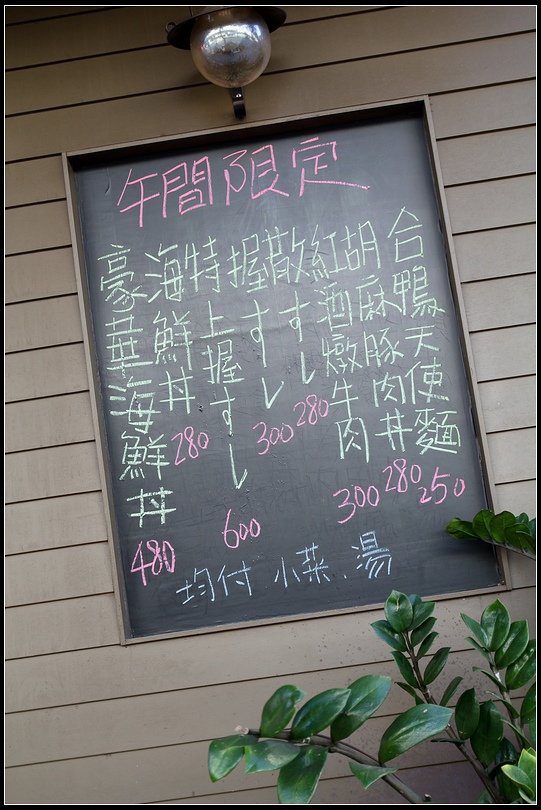 午間限定
合鴨天使麵 250
胡麻豚肉丼 280
紅酒燉牛肉 300
散すし 280
握すし 300
特上握すし 600
海鮮丼 280
豪華海鮮丼 480
均付.小菜.湯